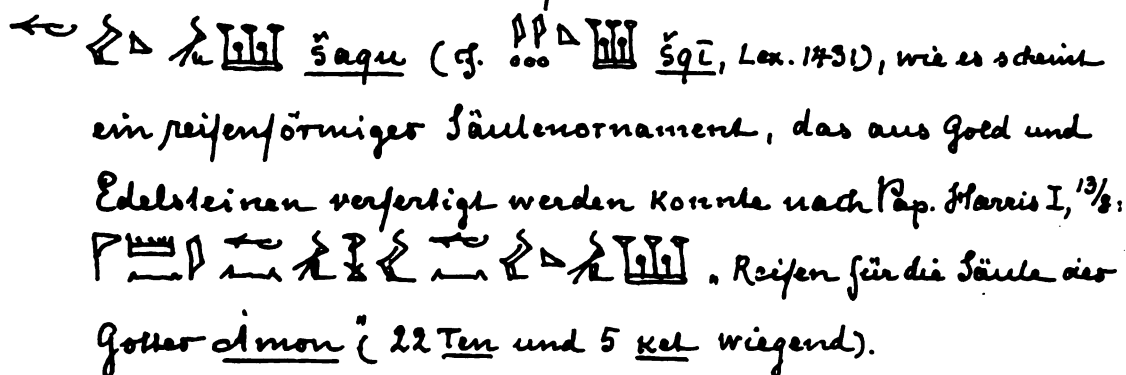 šaqu (cf. šqī, Lex. 1431), wie es scheint
ein reifenförmiges Säulenornament, das aus Gold und
Edelsteinen verfertigt werden konnte nach Pap. Harris I, 13/8:
„Reifen für die Säule des
Gottes Åmon“ (22 Ten und 5 Ket wiegend).